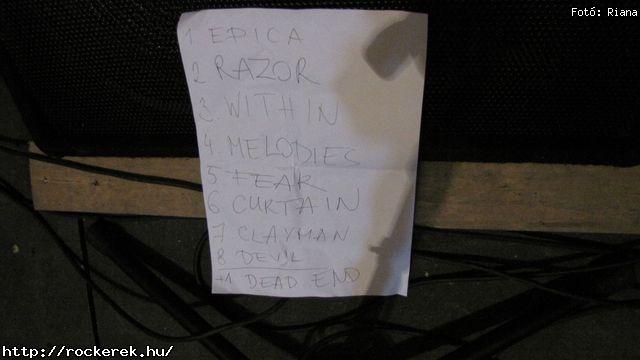 Fotó: Riana
1 EPICA
2 RAZOR
3. WITHIN
4 MELODIES
5 FEAR
6 CURTAIN
7 CLAYMAN
8 DEVIL
+1 DEAD END
http://rockerek.hu/